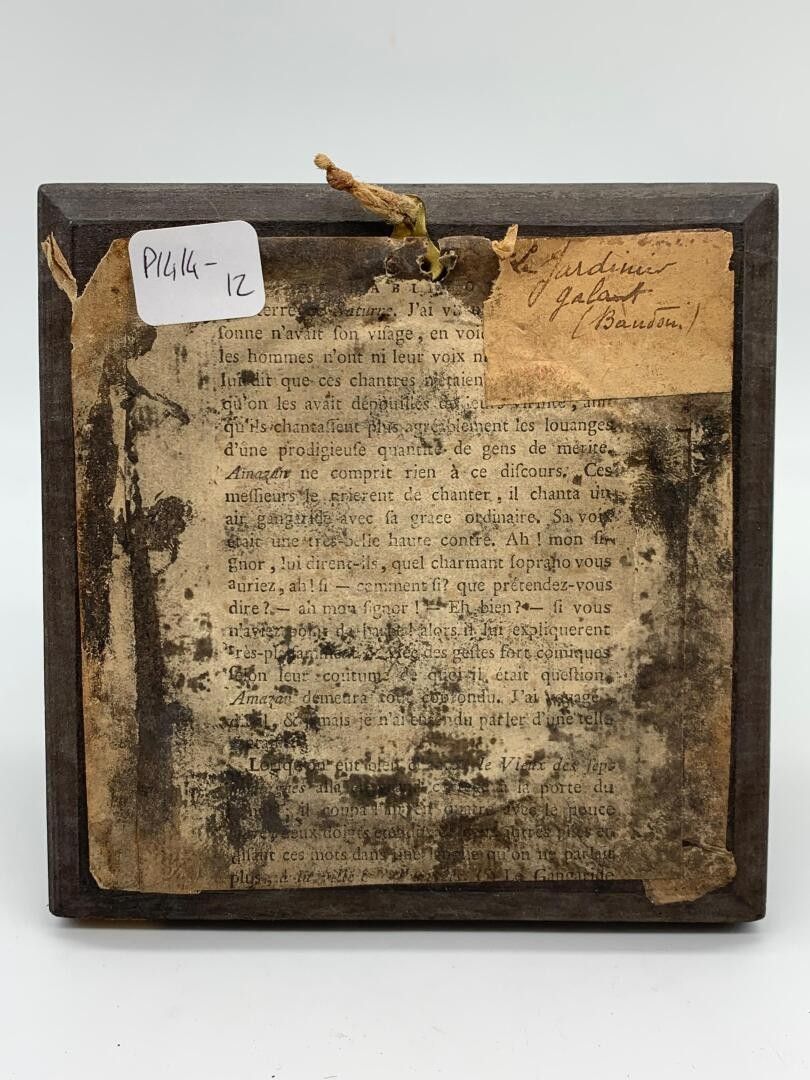 P1414-
12
Le Jardinier
galant
(Baudoin)
Saturne. J'ai vu
ſonne n'avait ſon viſage, en
les hommes n'ont ni leur voix
lui dit que ces chantres n'étaient
qu'on les avait dépouillés de leur
qu'ils chantaſſent plus agréablement les louanges
d'une prodigieuſe quantité de gens de mérite.
Amazan ne comprit rien à ce diſcours. Ces
meſſieurs le prierent de chanter, il chanta un
air gangaride avec ſa grace ordinaire. Sa voix
était une très-belle haute contre. Ah! mon ſi-
gnor, lui dirent-ils, quel charmant ſoprano vous
auriez, ah! ſi — comment ſi? que prétendez-vous
dire? — ah mon ſignor! — Eh bien? — ſi vous
n'aviez point de barbe! alors il lui expliquerent
très-plaiſamment & avec des geſtes fort comiques
ſelon leur coutume de quoi il était queſtion.
Amazan demeura tout confondu. J'ai voyagé,
dit-il, & jamais je n'ai entendu parler d'une telle
le Vieux des ſept
alla à la porte du
il coupa l'air le pouce
deux doigts en
diſant ces mots dans une langue qu'on ne parlait
plus, Le Gangaride